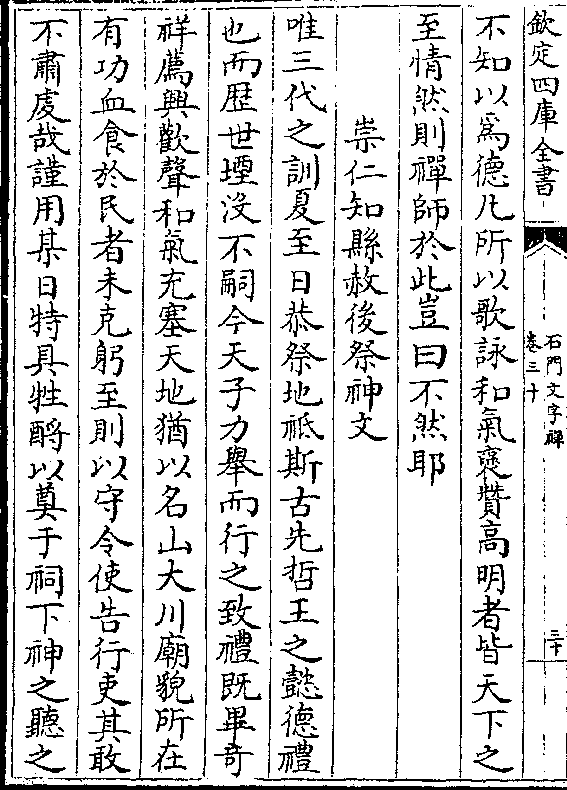 欽定四庫全書
石門文字禪
卷三十
三十
不知以為德凡所以歌詠和氣褒贊高明者皆天下之
至情然則禪師於此豈曰不然耶
崇仁知縣赦後祭神文
唯三代之訓夏至日恭祭地祗斯古先哲王之懿德禮
也而歴世堙没不嗣今天子力舉而行之致禮既畢竒
祥薦興歡聲和氣充塞天地猶以名山大川廟貌所在
有功血食於民者未克躬至則以守令使告行吏其敢
不肅虔哉謹用某日特具牲酹以奠于祠下神之聽之